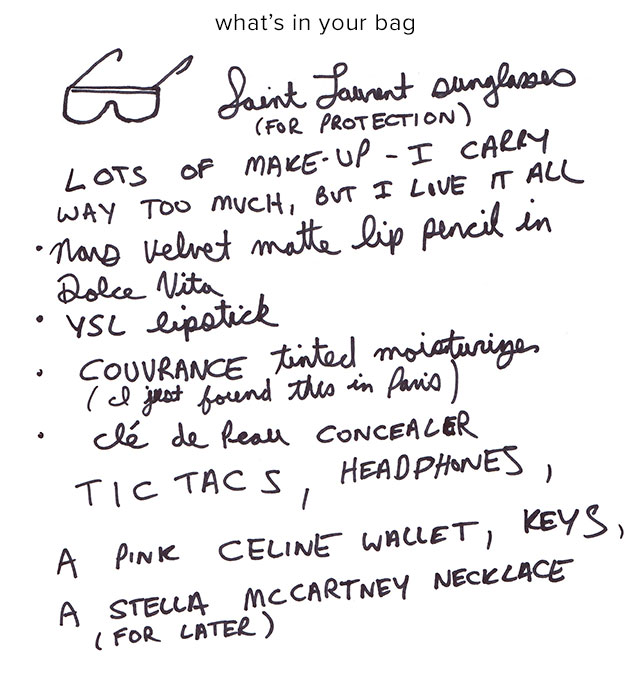 what's in your bag
Saint Laurent sunglasses
(FOR PROTECTION)
LOTS OF MAKE-UP - I CARRY
WAY TOO MUCH, BUT I LOVE IT ALL
• Nars velvet matte lip pencil in
Dolce Vita
• YSL lipstick
• COUVRANCE tinted moisturizer
(I just found this in Paris)
• clé de Peau CONCEALER
TIC TACS, HEADPHONES,
A PINK CELINE WALLET, KEYS,
A STELLA MCCARTNEY NECKLACE
(FOR LATER)